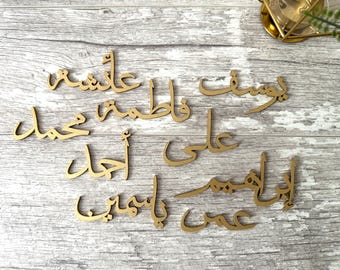 عائشه
يوسف
فاطمة
محمد
على
أحمد
إبراهيم
ياسمين
عمر